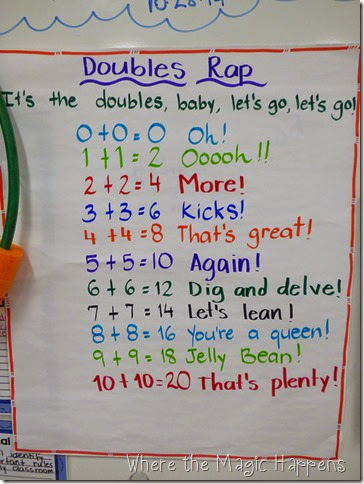 10-28-14
Doubles Rap
It's the doubles, baby, let's go, let's go!
0+0=0 Oh!
1+1=2 Ooooh!!
2+2=4 More!
3+3=6 Kicks!
4+4=8 That's great!
5+5=10 Again!
6+6=12 Dig and delve!
7+7=14 Let's lean!
8+8=16 You're a queen!
9+9=18 Jelly Bean!
10+10=20 That's plenty!
identify
rtant rules
classroom
Where the Magic Happens